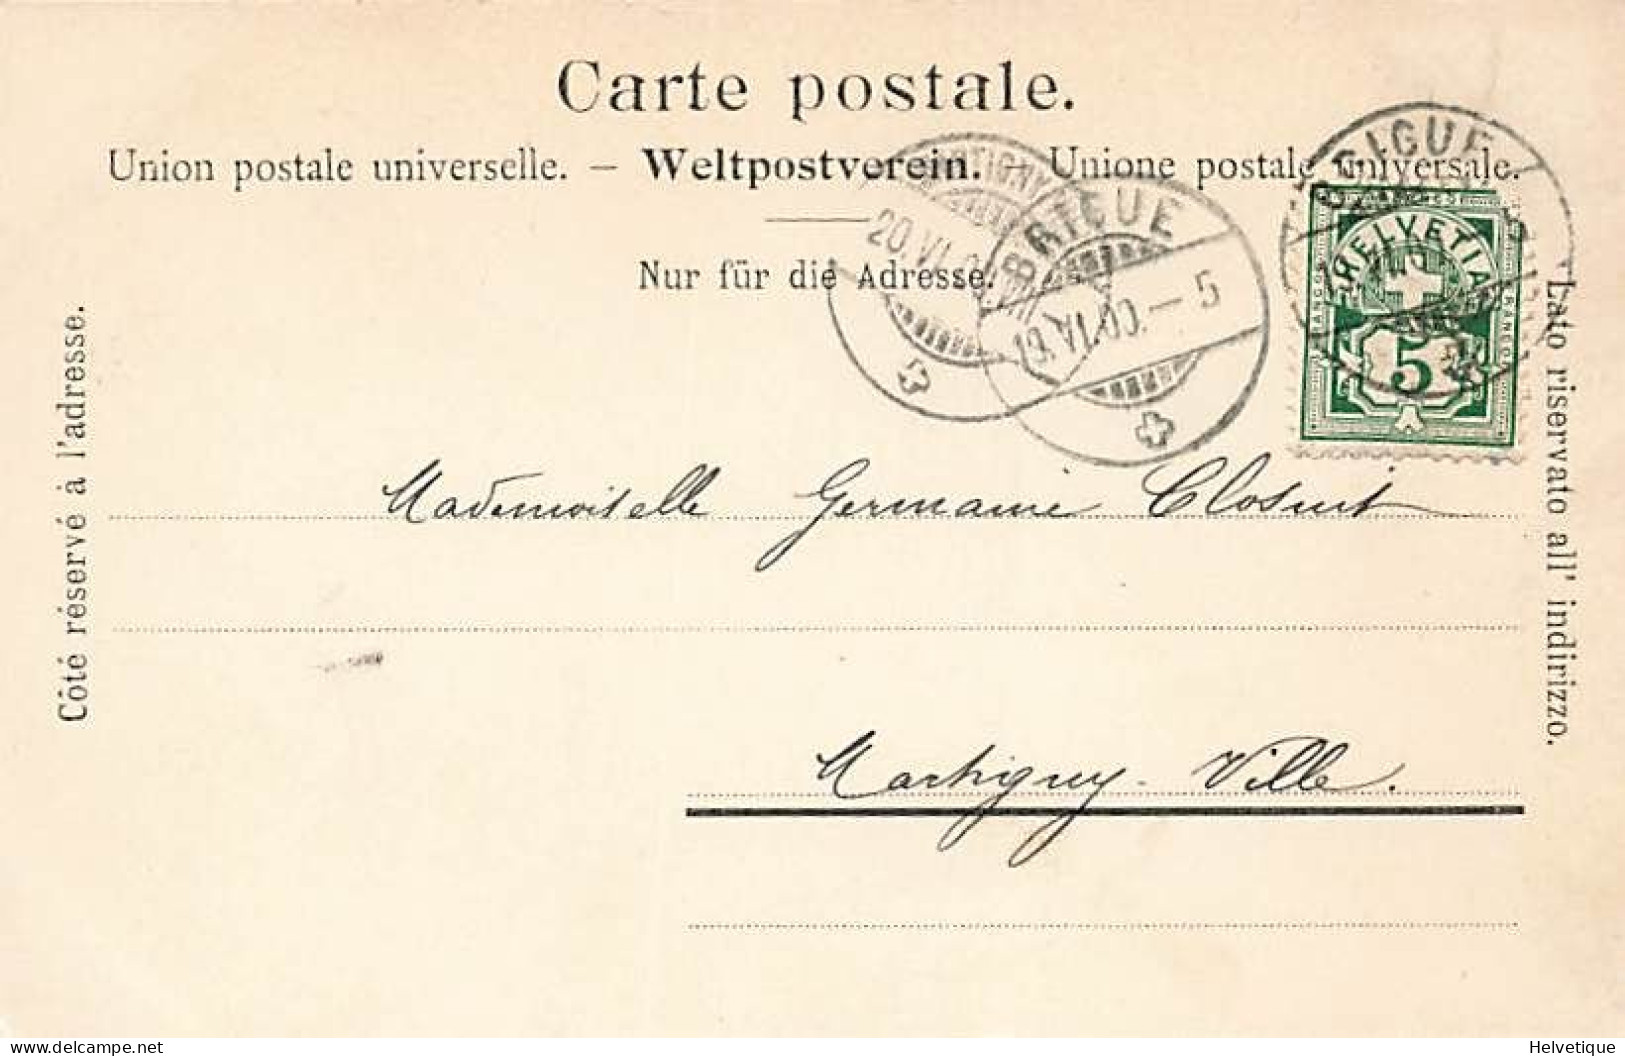 Carte postale.
Union postale universelle. – Weltpostverein. – Unione postale universale.
Nur für die Adresse.
Côté réservé à l'adresse.
Lato riservato all' indirizzo.
MARTIGNY
20.VI.
BRIGUE
5
BRIGUE
HELVETIA
FRANCO
5
Mademoiselle Germaine Closuit
Martigny-Ville.
delcampe.net
Helvetique